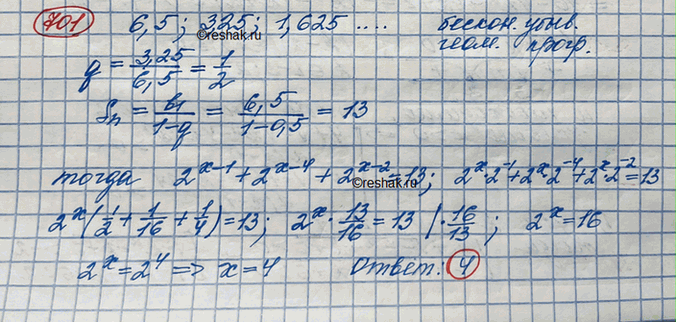 701 6,5; 3,25; 1,625 .... бескон. убыв.
геом. прогр.
q = 3,25/6,5 = 1/2
reshak.ru
Sn = b1/1-q = 6,5/1-0,5 = 13
тогда 2^(x-1) + 2^(x-4) + 2^(x-2) = 13; 2^x·2^-1 + 2^x·2^-4 + 2^x·2^-2 = 13
reshak.ru
2^x(1/2 + 1/16 + 1/4) = 13; 2^x · 13/16 = 13 |· 16/13; 2^x = 16
2^x = 2^4 => x = 4 Ответ: 4